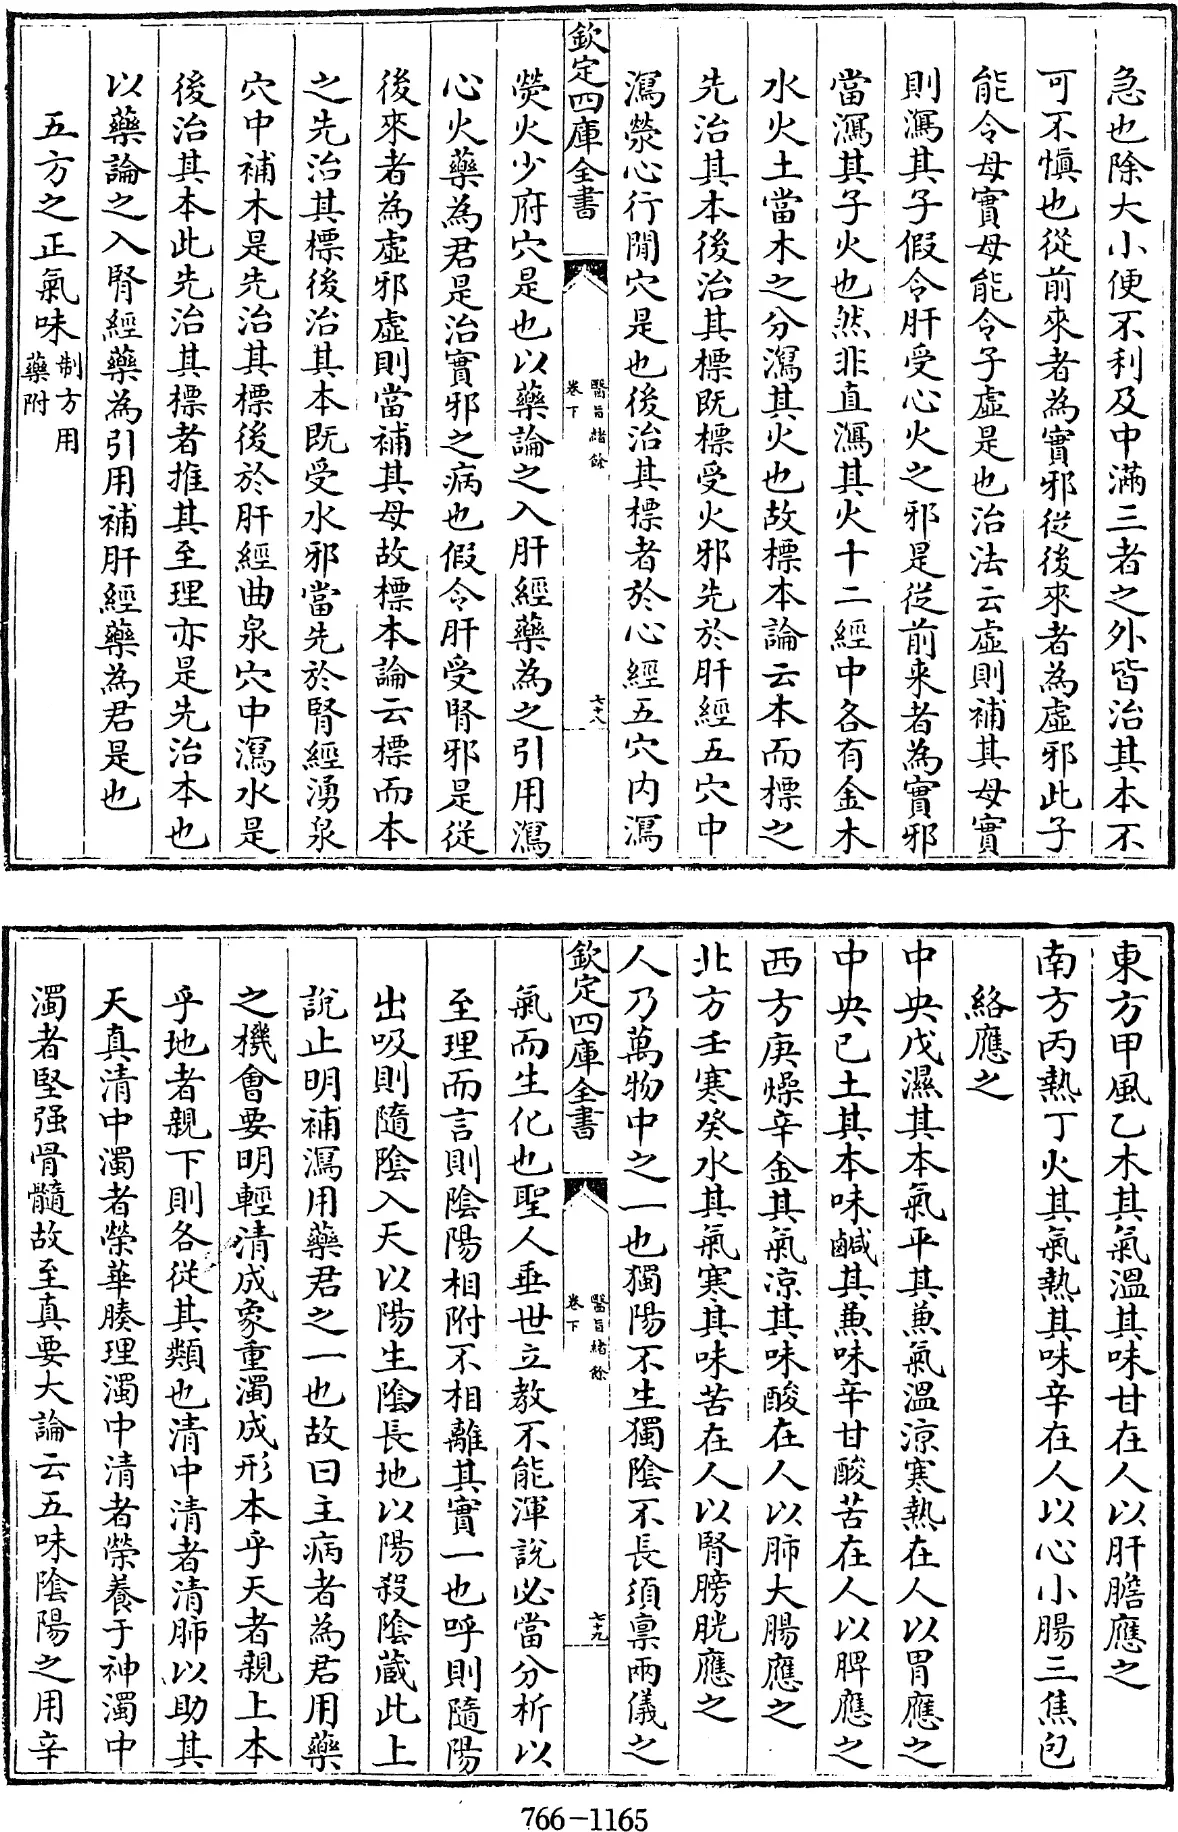 急也除大小便不利及中滿三者之外皆治其本不
可不愼也從前來者為實邪從後來者為虛邪此子
能令母實母能令子虛是也治法云虛則補其母實
則瀉其子假令肝受心火之邪是從前来者為實邪
當瀉其子火也然非直瀉其火十二經中各有金木
水火土當木之分瀉其火也故標本論云本而標之
先治其本後治其標既標受火邪先於肝經五穴中
瀉滎心行間穴是也後治其標者於心經五穴内瀉
欽定四庫全書
醫旨緒餘
卷下
七十八
熒火少府穴是也以藥論之入肝經藥為之引用瀉
心火藥為君是治實邪之病也假令肝受腎邪是從
後來者為虛邪虛則當補其母故標本論云標而本
之先治其標後治其本既受水邪當先於腎經湧泉
穴中補木是先治其標後於肝經曲泉穴中瀉水是
後治其本此先治其標者推其至理亦是先治本也
以藥論之入腎經藥為引用補肝經藥為君是也
五方之正氣味制方用藥附
東方甲風乙木其氣溫其味甘在人以肝膽應之
南方丙熱丁火其氣熱其味辛在人以心小腸三焦包
絡應之
中央戊濕其本氣平其兼氣溫涼寒熱在人以胃應之
中央已土其本味鹹其兼味辛甘酸苦在人以脾應之
西方庚燥辛金其氣涼其味酸在人以肺大腸應之
北方壬寒癸水其氣寒其味苦在人以腎膀胱應之
人乃萬物中之一也獨陽不生獨陰不長須禀兩儀之
欽定四庫全書
醫旨緒餘
卷下
七十九
氣而生化也聖人垂世立教不能渾說必當分析以
至理而言則陰陽相附不相離其實一也呼則隨陽
出吸則隨陰入天以陽生陰長地以陽殺陰藏此上
說止明補瀉用藥君之一也故曰主病者為君用藥
之機會要明輕清成象重濁成形本乎天者親上本
乎地者親下則各從其類也清中清者清肺以助其
天真清中濁者榮華腠理濁中清者榮養于神濁中
濁者堅强骨髓故至真要大論云五味陰陽之用辛
766-1165